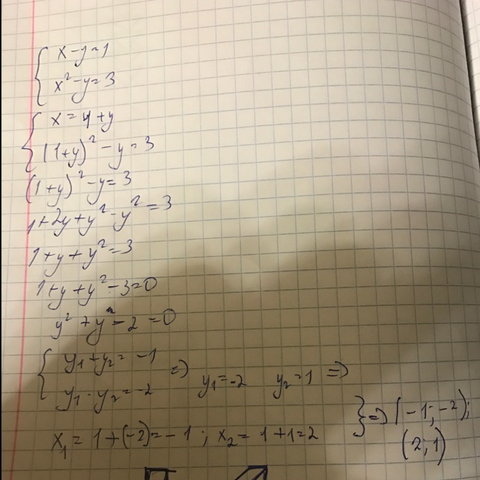 x-y=1
x²-y=3
x=1+y
(1+y)²-y=3
(1+y)²-y=3
1+2y+y²-y²=3
1+y+y²=3
1+y+y²-3=0
y²+y-2=0
y₁+y₂=-1
y₁·y₂=-2 => y₁=-2 y₂=1 =>
x₁=1+(-2)=-1; x₂=1+1=2 } => (-1;-2);
(2;1)